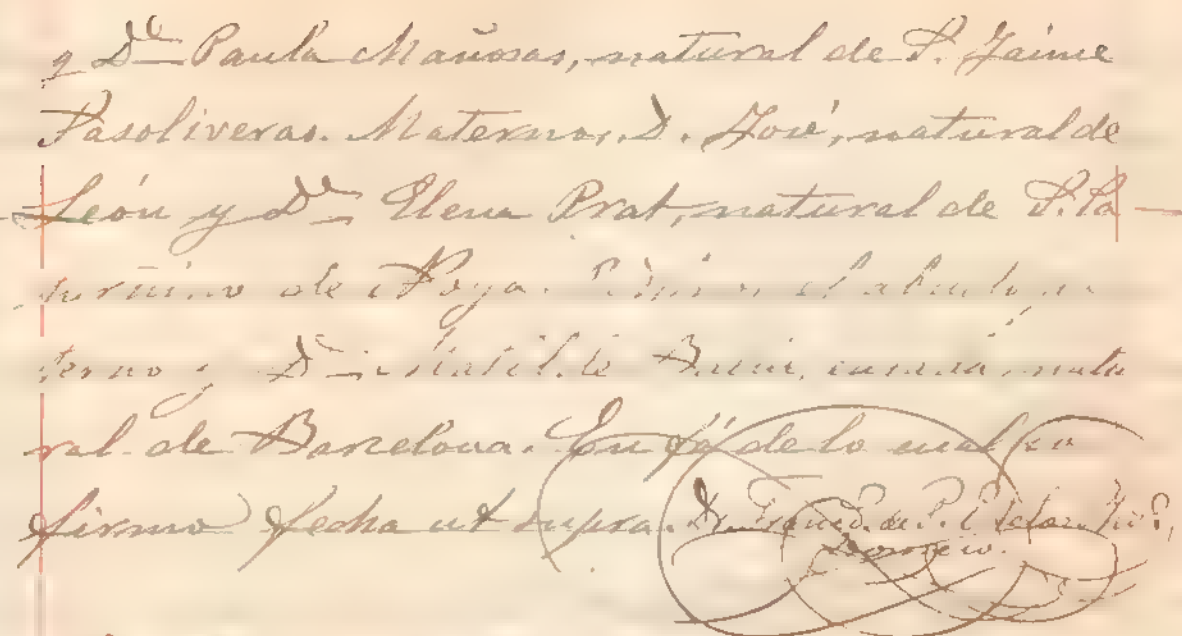 y Dª Paula Mañosas, natural de S. Jaime
Pasoliveras. Maternos, D. José, natural de
León y Dª Elena Prat, natural de S. Sa-
turnino de Noya. el abuelo pa
terno y Dª Matilde natu
ral de Barcelona. En fé de lo cual lo
firmo fecha ut supra. Dr. Franco. de P.
Domero.